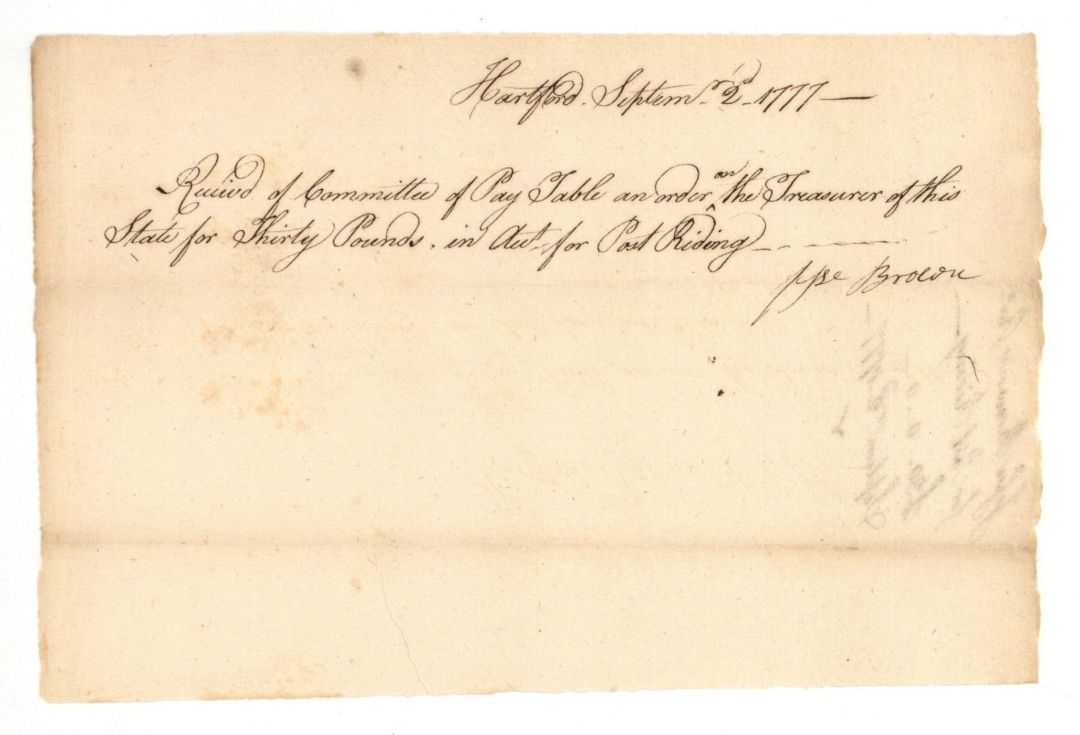 Hartford. Septemr. 2d. 1777 —
Receivd of Committee of Pay Table an order on the Treasurer of this
State for Thirty Pounds. in Acct. for Post Riding
Brown